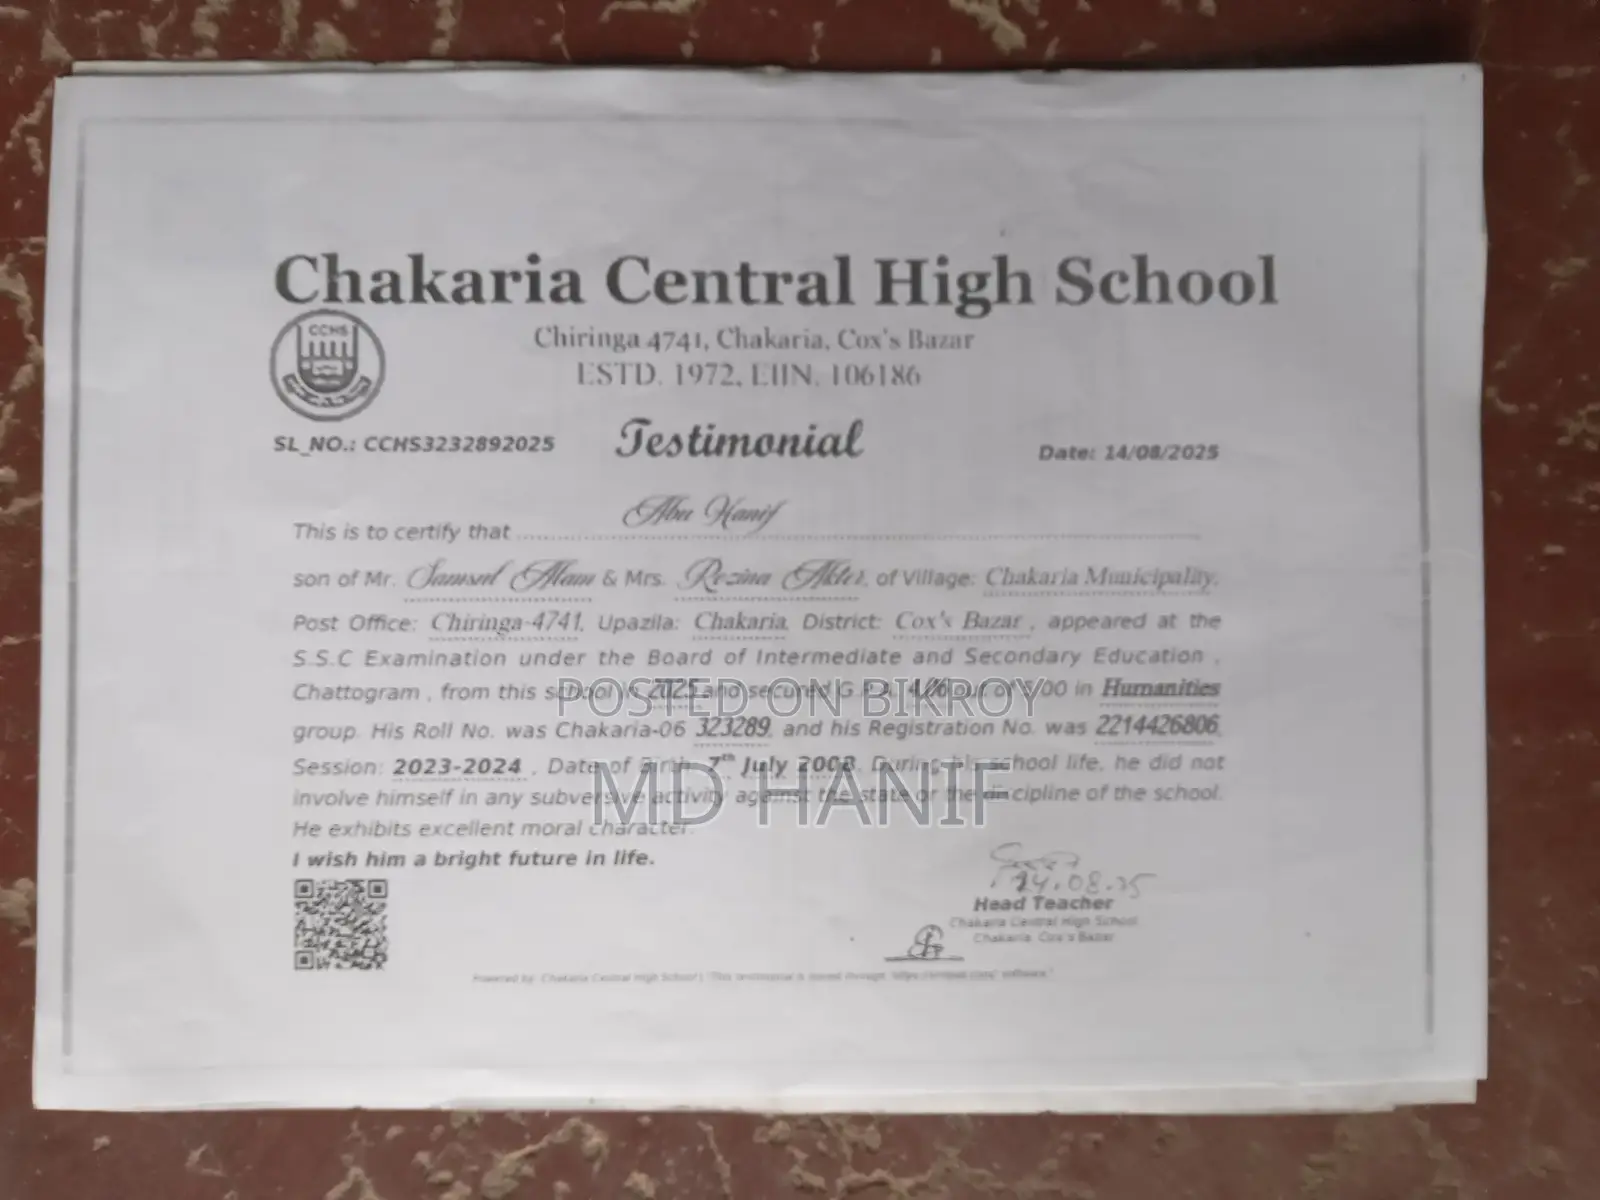 Chakaria Central High School
CCHS
Chiringa 4741, Chakaria, Cox's Bazar
ESTD. 1972, EIIN. 106186
SL_NO.: CCHS3232892025
Testimonial
Date: 14/08/2025
This is to certify that Abu Hanif
son of Mr. Samsul Alam & Mrs. Rozina Akter, of Village: Chakaria Municipality,
Post Office: Chiringa-4741, Upazila: Chakaria, District: Cox's Bazar, appeared at the
S.S.C Examination under the Board of Intermediate and Secondary Education ,
Chattogram , from this school in 2025 and secured G.P.A. out of 5.00 in Humanities
group. His Roll No. was Chakaria-06 323289, and his Registration No. was 2214426806,
Session: 2023-2024 , Date of Birth 7th July 2008. During his school life, he did not
involve himself in any subversive activity against the state or the discipline of the school.
He exhibits excellent moral character.
I wish him a bright future in life.
POSTED ON BIKROY
MD HANIF
14.08.25
Head Teacher
Chakaria Central High School
Chakaria, Cox's Bazar
Powered by: Chakaria Central High School | "This testimonial is issued through software."